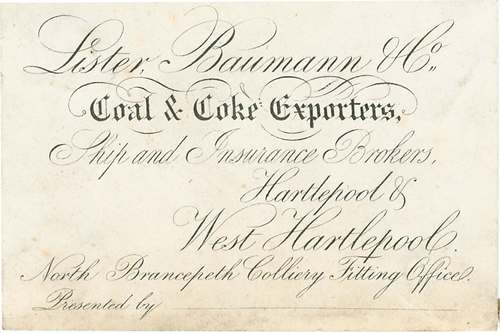 Lister, Baumann & Co.
Coal & Coke Exporters,
Ship and Insurance Brokers,
Hartlepool &
West Hartlepool.
North Brancepeth Colliery Fitting Office.
Presented by